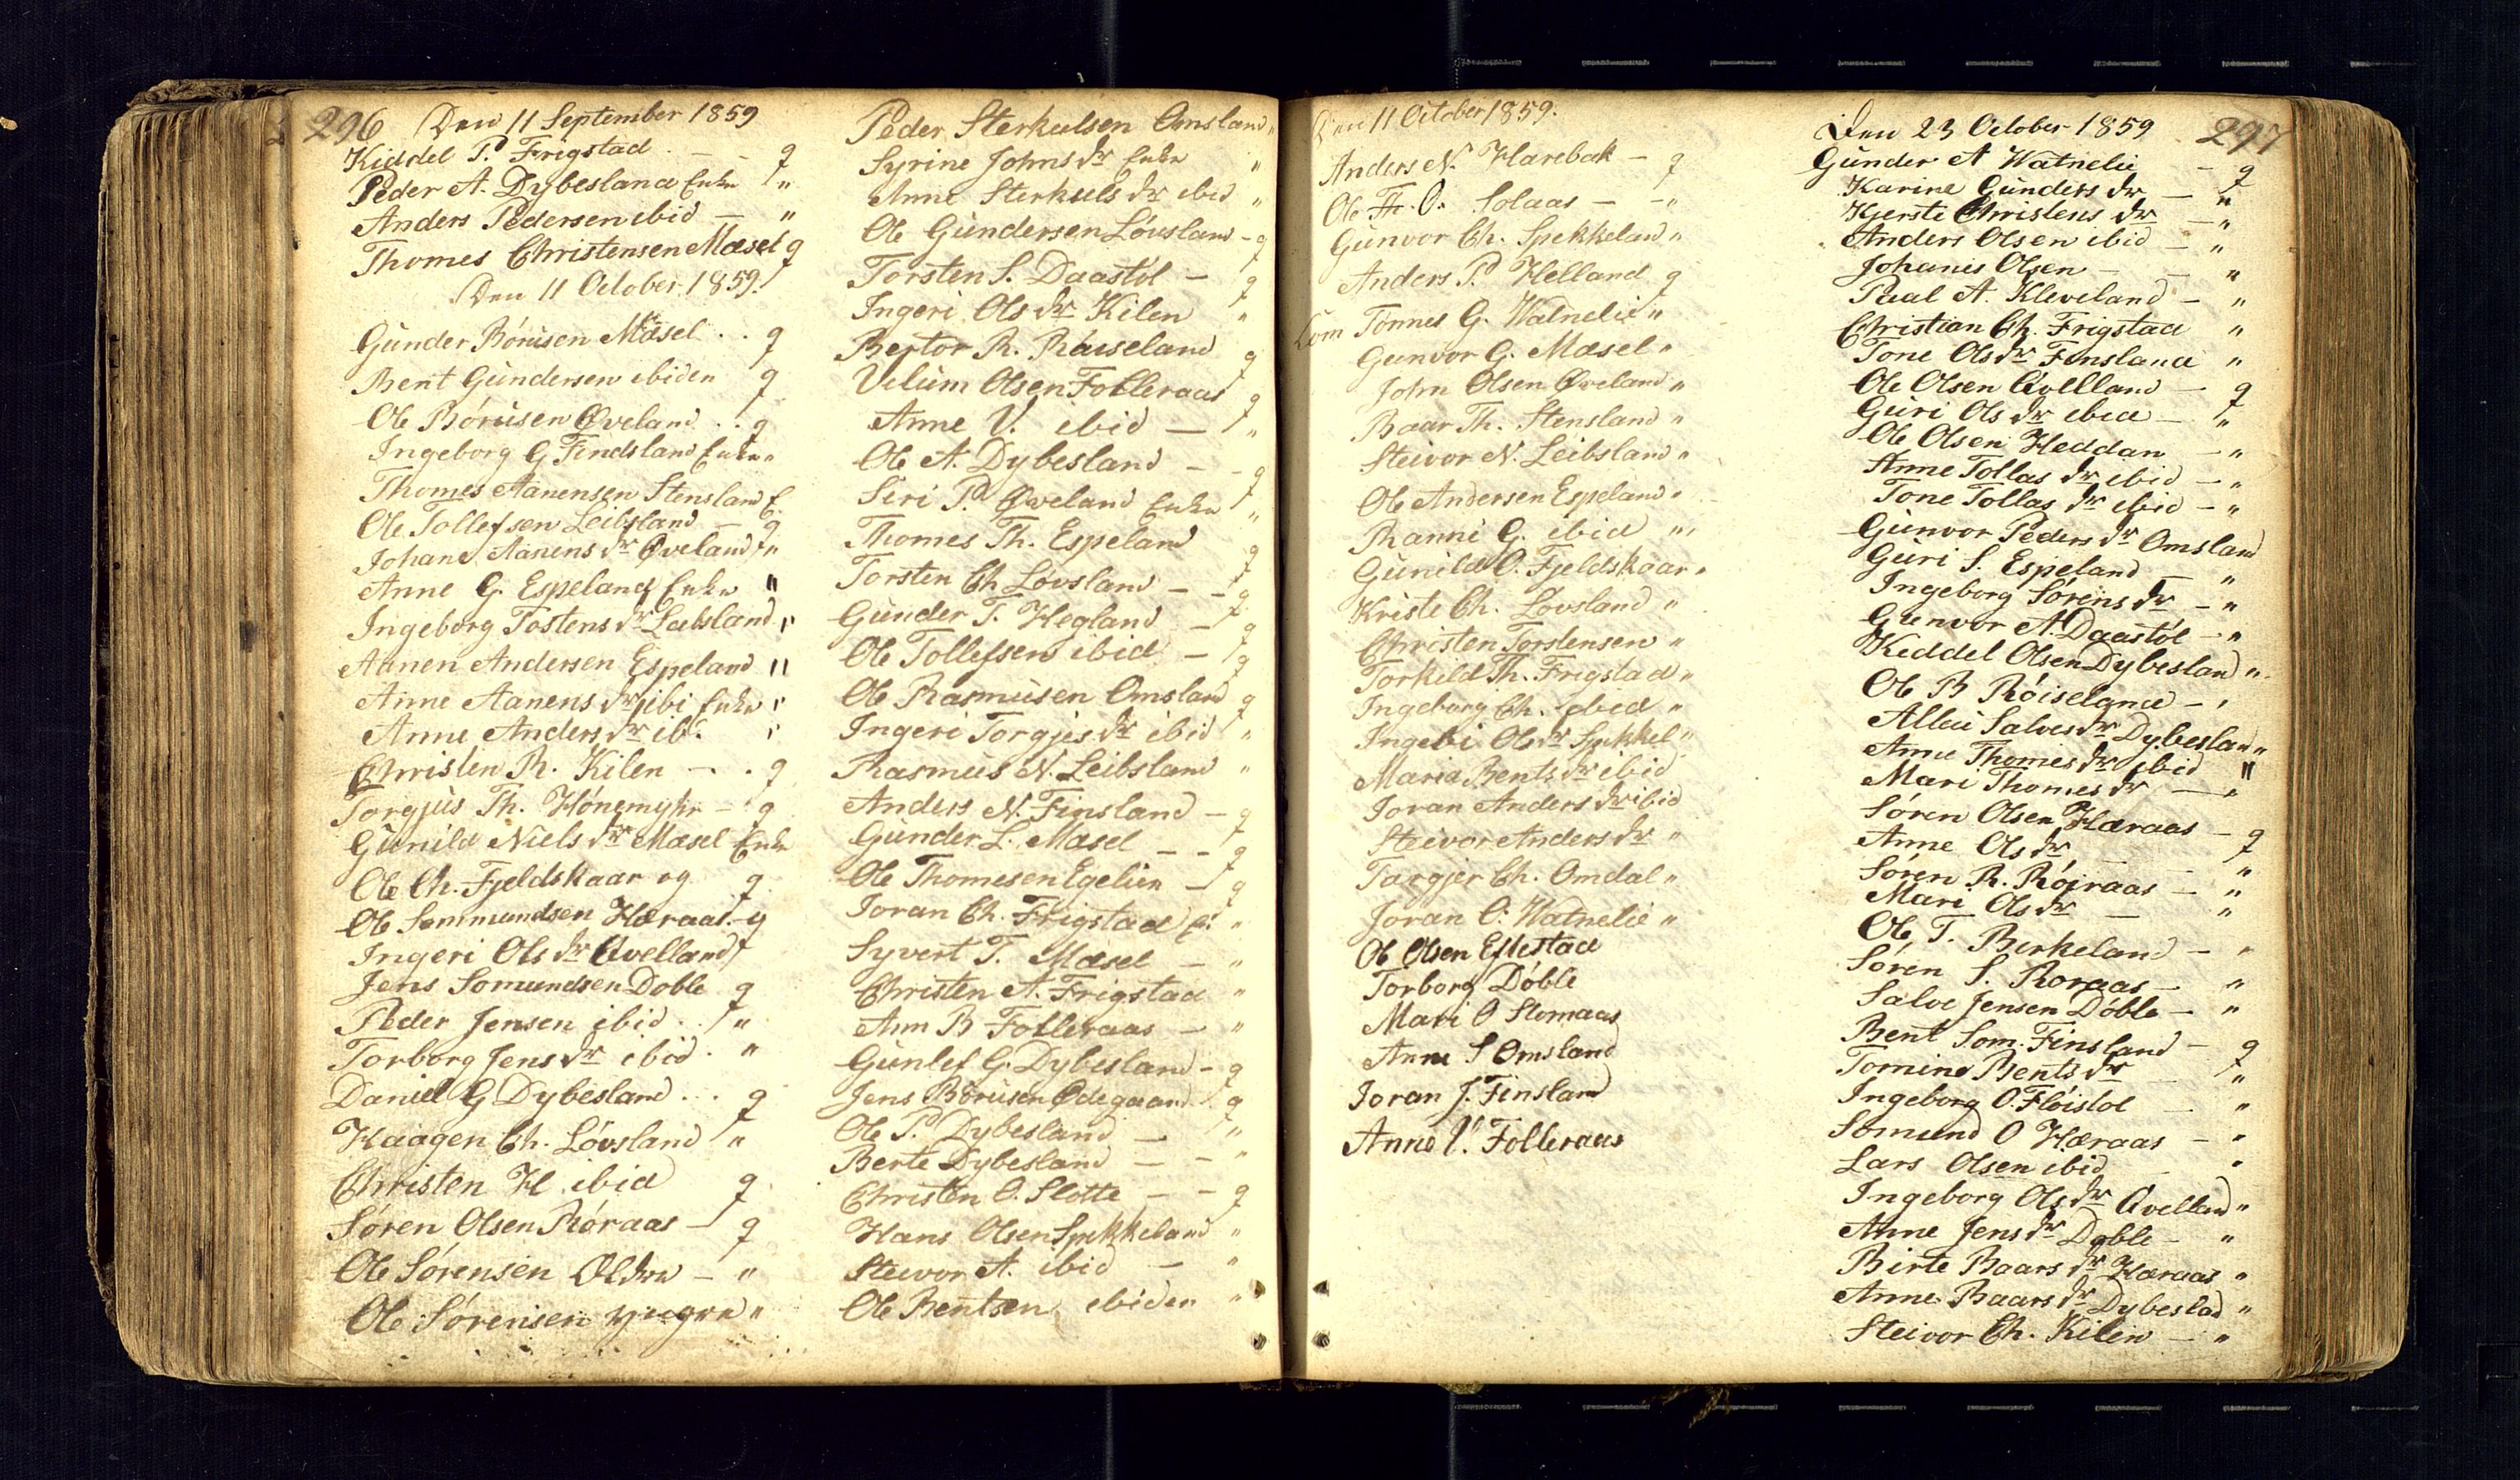 296 Den 11 September 1859
Kiddel P. Frigstad - - g
Peder A. Dybesland Enke "
Anders Pedersen ibid - "
Thomes Christensen Mæsel g
Den 11 October 1859.
Gunder Börüsen Mæsel . . g
Bent Gundersen ibiden g
Ole Börüsen Øveland . . g
Ingeborg G Findsland Enke "
Thomes Aanensen Stensland E.
Ole Tollefsen Leibsland - g
Johane Aanens dr Øveland "
Anne G. Espeland Enke "
Ingeborg Tostens dr Leibsland "
Aanen Andersen Espeland "
Anne Aanens dr ibi Enke "
Anne Anders dr ib. "
Christen R. Kilen - . g
Torgjus Th. Hönemyhr - g
Gunild Niels dr Mæsel Enke
Ole Ch. Fjeldskaar og g
Ole Sommundsen Hæraas - g
Ingeri Ols dr Qvelland
Jens Somundsen Doble g
Peder Jensen ibid . . "
Torborg Jens dr ibid . "
Daniel G Dybesland . . g
Haagen Ch. Lövsland "
Christen H ibid g
Søren Olsen Röraas - g
Ole Sørensen Ældre - "
Ole Sørensen yngre "
Peder Sterkulsen Omsland "
Syrine Johns dr Enke "
Anne Sterkuls dr ibid "
Ole Gundersen Lövsland - g
Torsten S. Daastöl - g
Ingeri Ols dr Kilen "
Bertor R. Röiseland g
Vilum Olsen Folleraas g
Anne V. ibid - "
Ole A. Dybesland - - g
Siri P. Øveland Enke "
Thomes Th. Espeland g
Torsten Ch Lövsland - - g
Gunder T. Hegland - g
Ole Tollefsen ibid - g
Ole Rasmusen Omsland g
Ingeri Torgjes dr ibid "
Rasmus N. Leibsland "
Anders N. Finsland - g
Gunder L. Mæsel - - g
Ole Thomesen Egelien - g
Joran Ch. Frigstad E. "
Syvert T. Mæsel - "
Christen A. Frigstad "
Ann B Folleraas - "
Gunlef G. Dybesland - g
Jens Börüsen Ødegaard . g
Ole P. Dybesland - "
Berte Dybesland - - "
Christen O. Slotte - - g
Hans Olsen Spikkeland "
Steivor A. ibid - "
Ole Bentsen ibiden "
Den 11 October 1859.
Anders N. Harebak - g
Ole Th. O. Solaas - - "
Gunvor Ch. Spekkeland "
Anders P. Helland g
Tönnes G. Watnelie "
Gunvor G. Mæsel "
John Olsen Øveland "
Baar Th. Stensland "
Steivor N. Leibsland "
Ole Andersen Espeland "
Ranni G. ibid "
Gunild O. Fjeldskaar "
Kriste Ch. Lövsland "
Christen Torstensen "
Torkild Th. Frigstad "
Ingeborg Ch. ibid "
Ingebi Ols dr Spikkel "
Maria Bents dr ibid
Joran Anders dr ibid
Steivor Anders dr "
Targjer Ch. Omdal "
Joran O. Watnelie "
Ole Olsen Eftestad
Torborg Döble
Mari O Stomaas
Anne S Omsland
Joran J. Finsland
Anne V. Folleraas
Den 23 October 1859 297
Gunder A Watnelie - g
Karine Gunders dr - "
Kjerste Christens dr - "
Anders Olsen ibid - "
Johanis Olsen - - "
Paal A. Kleveland - "
Christian Ch. Frigstad "
Tone Ols dr Finsland "
Ole Olsen Qvelland - g
Guri Ols dr ibid - "
Ole Olsen Heddan - "
Anne Tollas dr ibid - "
Tone Tollas dr ibid - "
Gunvor Peders dr Omsland
Guri S. Espeland - "
Ingeborg Sørens dr - "
Gunvor A. Daastöl - "
Kiddel Olsen Dybesland "
Ole B Röiseland - "
Allei Salves dr Dybesland "
Anne Thomes dr ibid "
Mari Thomes dr - "
Søren Olsen Hæraas - g
Anne Ols dr - - "
Søren R. Röiraas - "
Mari Ols dr - "
Ole T. Berkeland - "
Søren S. Roraas - "
Salve Jensen Döble - "
Bent Som. Finsland - g
Tomine Bents dr - "
Ingeborg O. Flöistöl - "
Somund O Hæraas - "
Lars Olsen ibid "
Ingeborg Ols dr Qvelland "
Anne Jens dr Doble - "
Birte Baars dr Hæraas "
Anne Baars dr Dybeslad "
Steivor Ch. Kilen - "